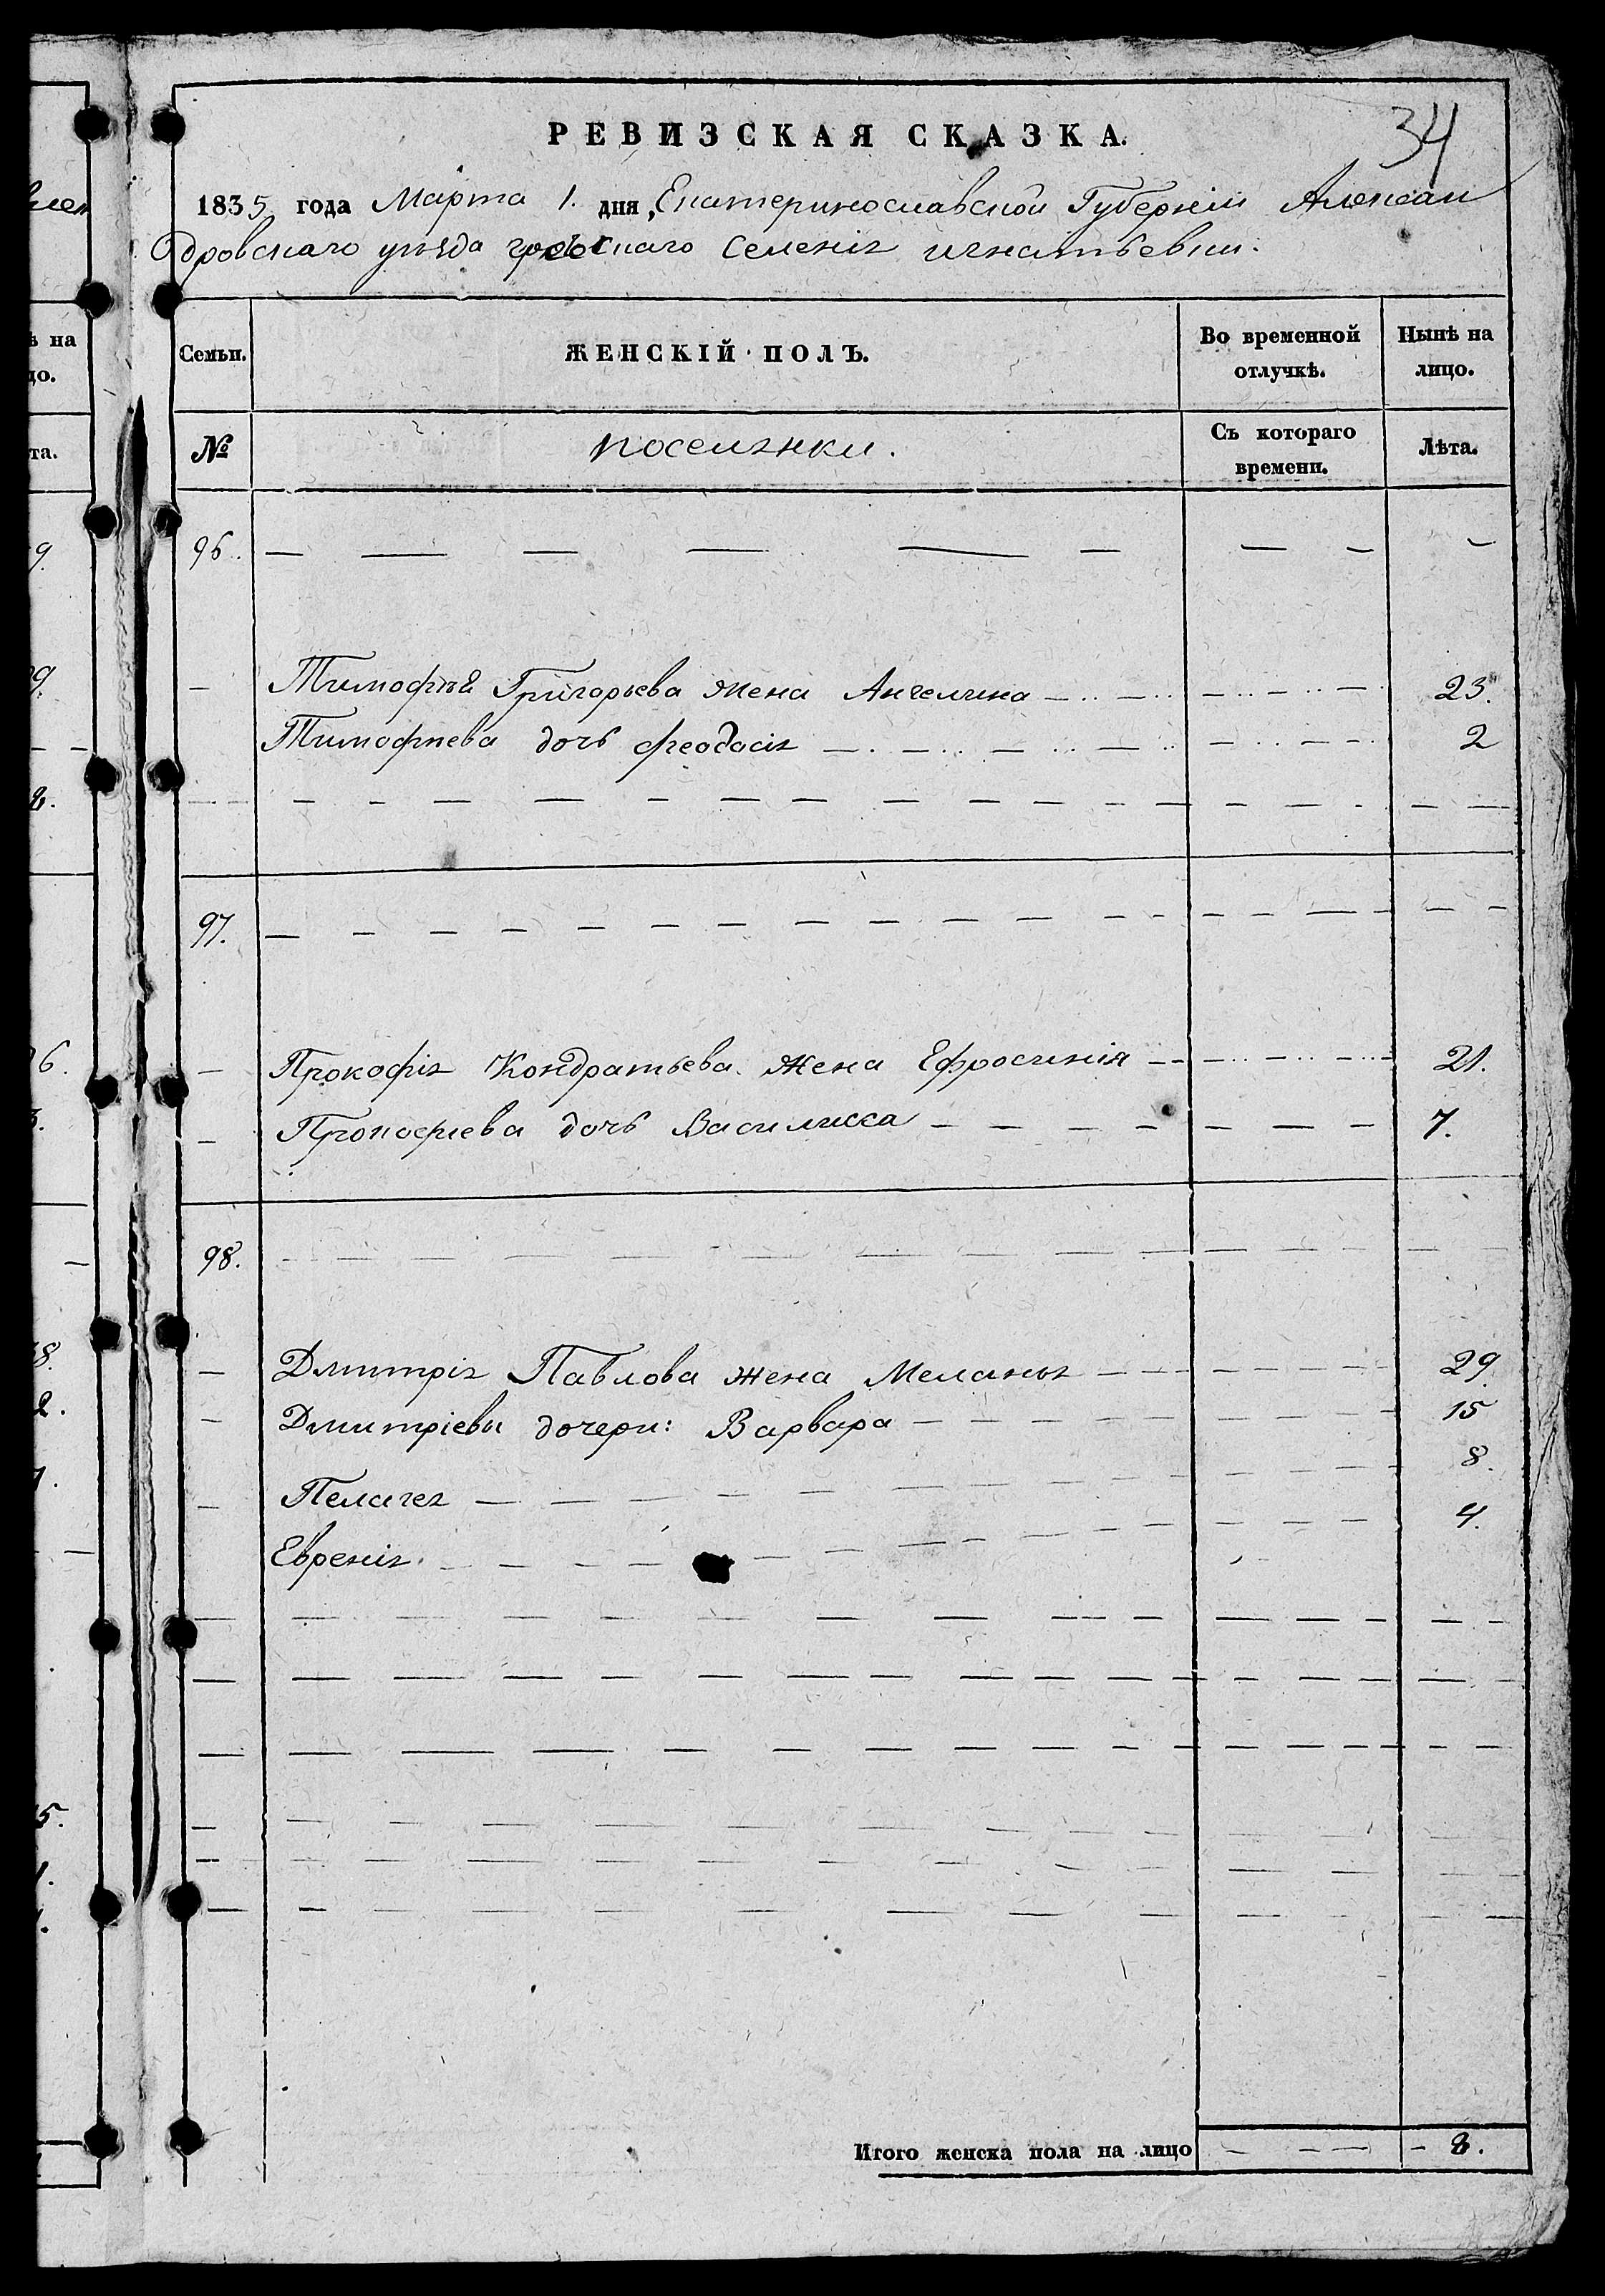 34
РЕВИЗСКАЯ СКАЗКА.
1835 года Марта 1. дня, Екатеринославской Губерніи Алексан
дровскаго уѣзда греческаго селенія игнатьевки.
Семьи.
ЖЕНСКІЙ ПОЛЪ.
Во временной отлучкѣ.
Нынѣ на лицо.
№
поселянки.
Съ котораго времени.
Лѣта.
96. — — — — — — — — —
— Тимофѣя Григорьева жена Ангелина — — — 23.
Тимофиева дочь феодосія — — — 2
97. — — — — — — — — —
— Прокофія Кондратьева жена Ефросинія — — — 21.
— Прокофиева дочь Василисса — — — 7.
98. — — — — — — — — —
— Дмитрія Павлова жена Меланья — — — 29
— Дмитріевы дочери: Варвара — — — 15
— Пелагея — — — 8.
Евреніа — — — 4.
Итого женска пола на лицо — — — 8.
ѣ на
цо.
та.
9.
9.
2.
6.
3.
8.
2.
5.
1.